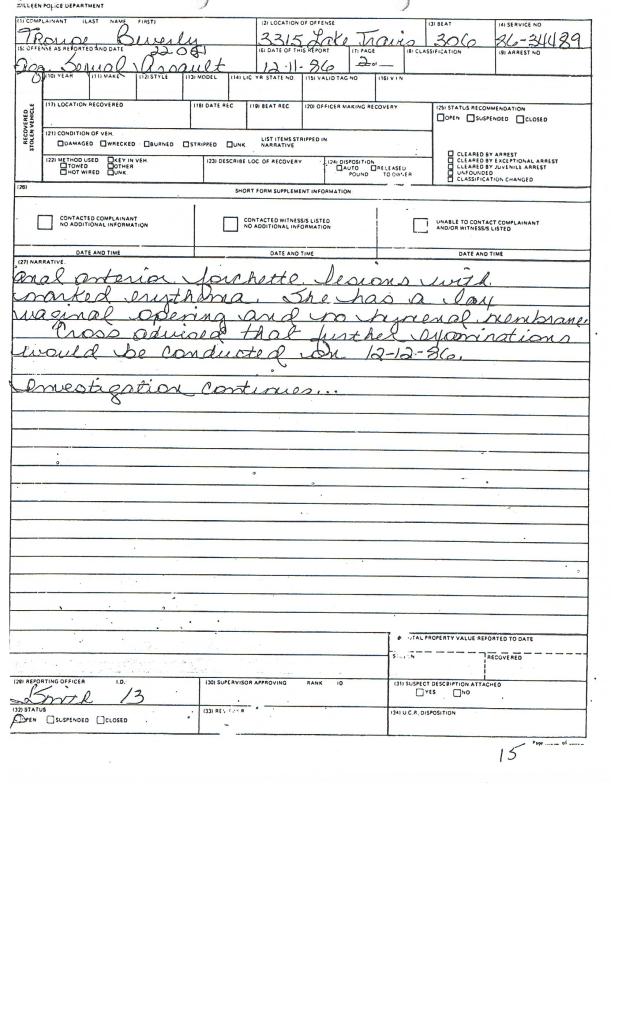 KILLEEN POLICE DEPARTMENT
(1) COMPLAINANT (LAST NAME FIRST) (2) LOCATION OF OFFENSE (3) BEAT (4) SERVICE NO
Beverly 3315 Lake Travis 306 86-34489
(5) OFFENSE AS REPORTED AND DATE (6) DATE OF THIS REPORT (7) PAGE (8) CLASSIFICATION (9) ARREST NO
Agg. Sexual Assault 12-11-86 2
RECOVERED STOLEN VEHICLE
(10) YEAR (11) MAKE (12) STYLE (13) MODEL (14) LIC YR STATE NO. (15) VALID TAG NO (16) VIN
(17) LOCATION RECOVERED (18) DATE REC (19) BEAT REC (20) OFFICER MAKING RECOVERY (25) STATUS RECOMMENDATION
OPEN SUSPENDED CLOSED
(21) CONDITION OF VEH.
DAMAGED WRECKED BURNED STRIPPED UNK LIST ITEMS STRIPPED IN NARRATIVE
(22) METHOD USED KEY IN VEH. (23) DESCRIBE LOC OF RECOVERY (24) DISPOSITION
TOWED OTHER AUTO POUND RELEASED TO OWNER
HOT WIRED UNK
CLEARED BY ARREST
CLEARED BY EXCEPTIONAL ARREST
CLEARED BY JUVENILE ARREST
UNFOUNDED
CLASSIFICATION CHANGED
(26) SHORT FORM SUPPLEMENT INFORMATION
CONTACTED COMPLAINANT CONTACTED WITNESS/S LISTED UNABLE TO CONTACT COMPLAINANT
NO ADDITIONAL INFORMATION NO ADDITIONAL INFORMATION AND/OR WITNESS/S LISTED
DATE AND TIME DATE AND TIME DATE AND TIME
(27) NARRATIVE.
anal anterior forchette lesions with
marked erythema. She has a lax
vaginal opening and no hymenal membrane.
Cross advised that further examinations
would be conducted on 12-12-86.
Investigation continues...
TOTAL PROPERTY VALUE REPORTED TO DATE
RECOVERED
(29) REPORTING OFFICER I.D. (30) SUPERVISOR APPROVING RANK ID (31) SUSPECT DESCRIPTION ATTACHED
Smith 13 YES NO
(32) STATUS (34) U.C.R. DISPOSITION
OPEN SUSPENDED CLOSED
15 Page of